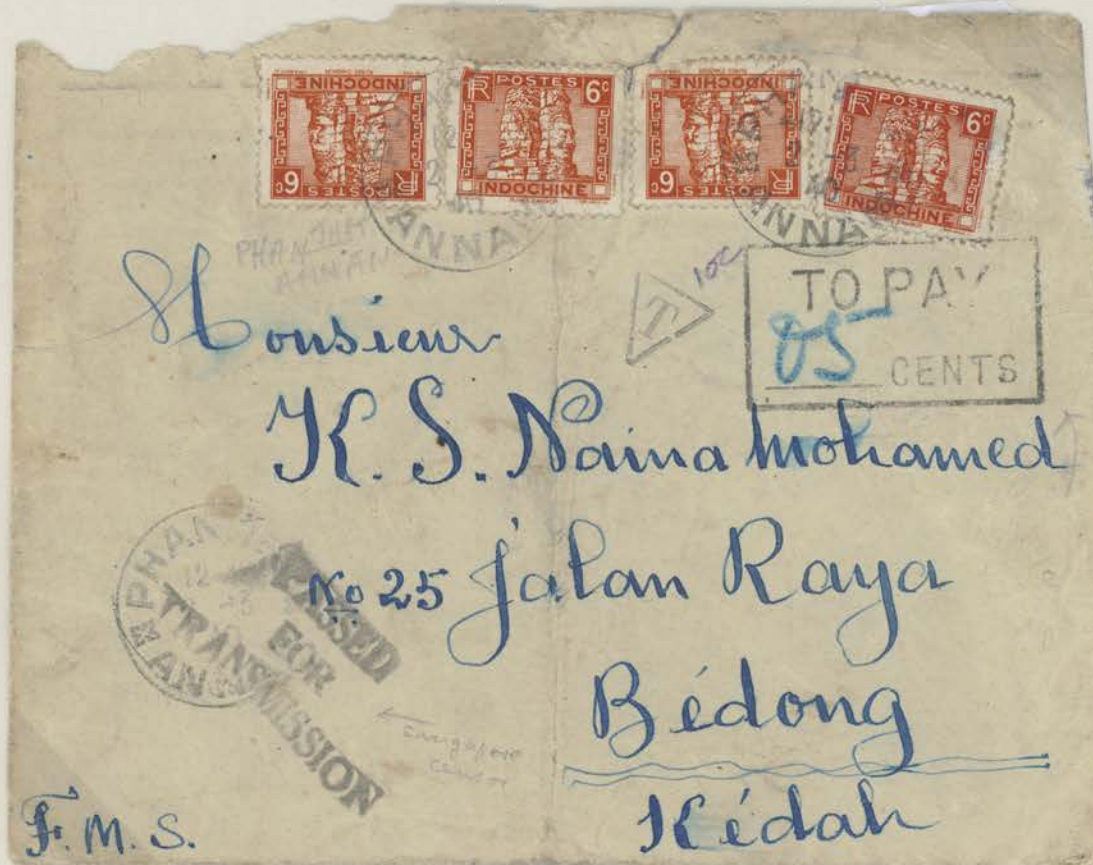 INDOCHINE POSTES 6c RF
RF POSTES 6c INDOCHINE
INDOCHINE POSTES 6c RF
RF POSTES 6c INDOCHINE
ANNAM
ANNAM
PHANTHIET
ANNAM
10c
T
TO PAY
05
CENTS
Monsieur
K. S. Naina Mohamed
No 25 Jalan Raya
Bédong
Kédah
F. M. S.
PHAN
12
ANNAM
PASSED
FOR
TRANSMISSION
← Singapore
censor